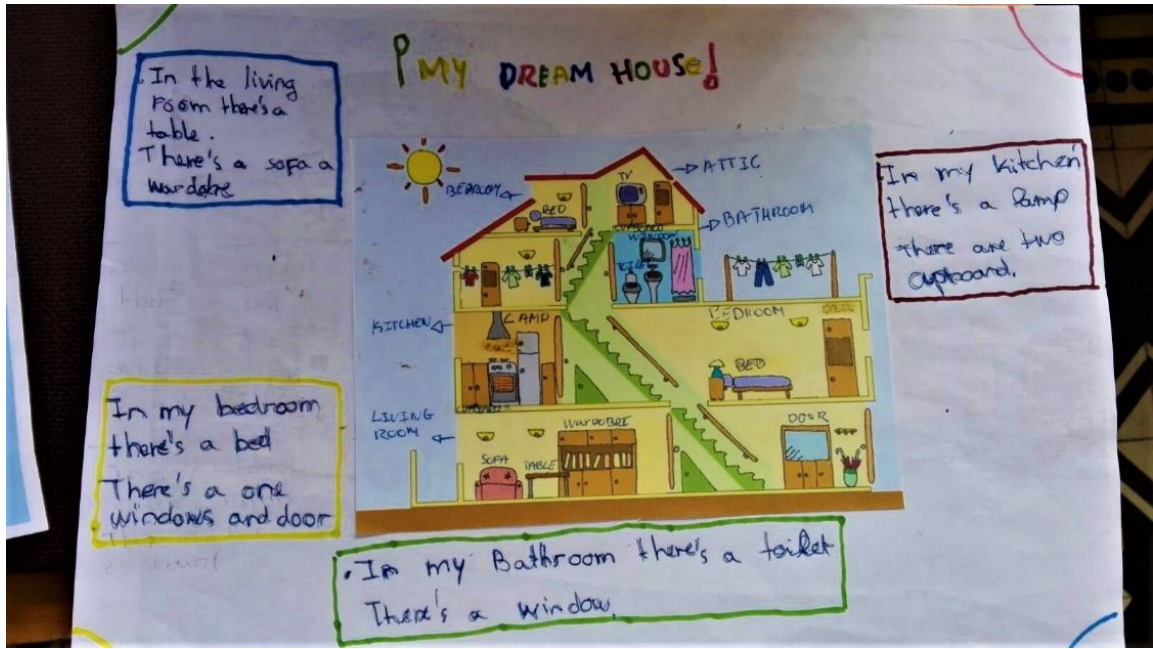 MY DREAM HOUSE!
In the living
room there's a
table.
There's a sofa a
wardobe
In my kitchen
there's a lamp
There are two
cupboard.
ATTIC
BEDROOM
TV
BED
BATHROOM
WINDOW
KITCHEN
LAMP
BEDROOM
BED
LIVING
ROOM
WARDOBRE
DOOR
SOFA
TABLE
In my bedroom
there's a bed
There's a one
windows and door
In my Bathroom there's a toilet
There's a window.